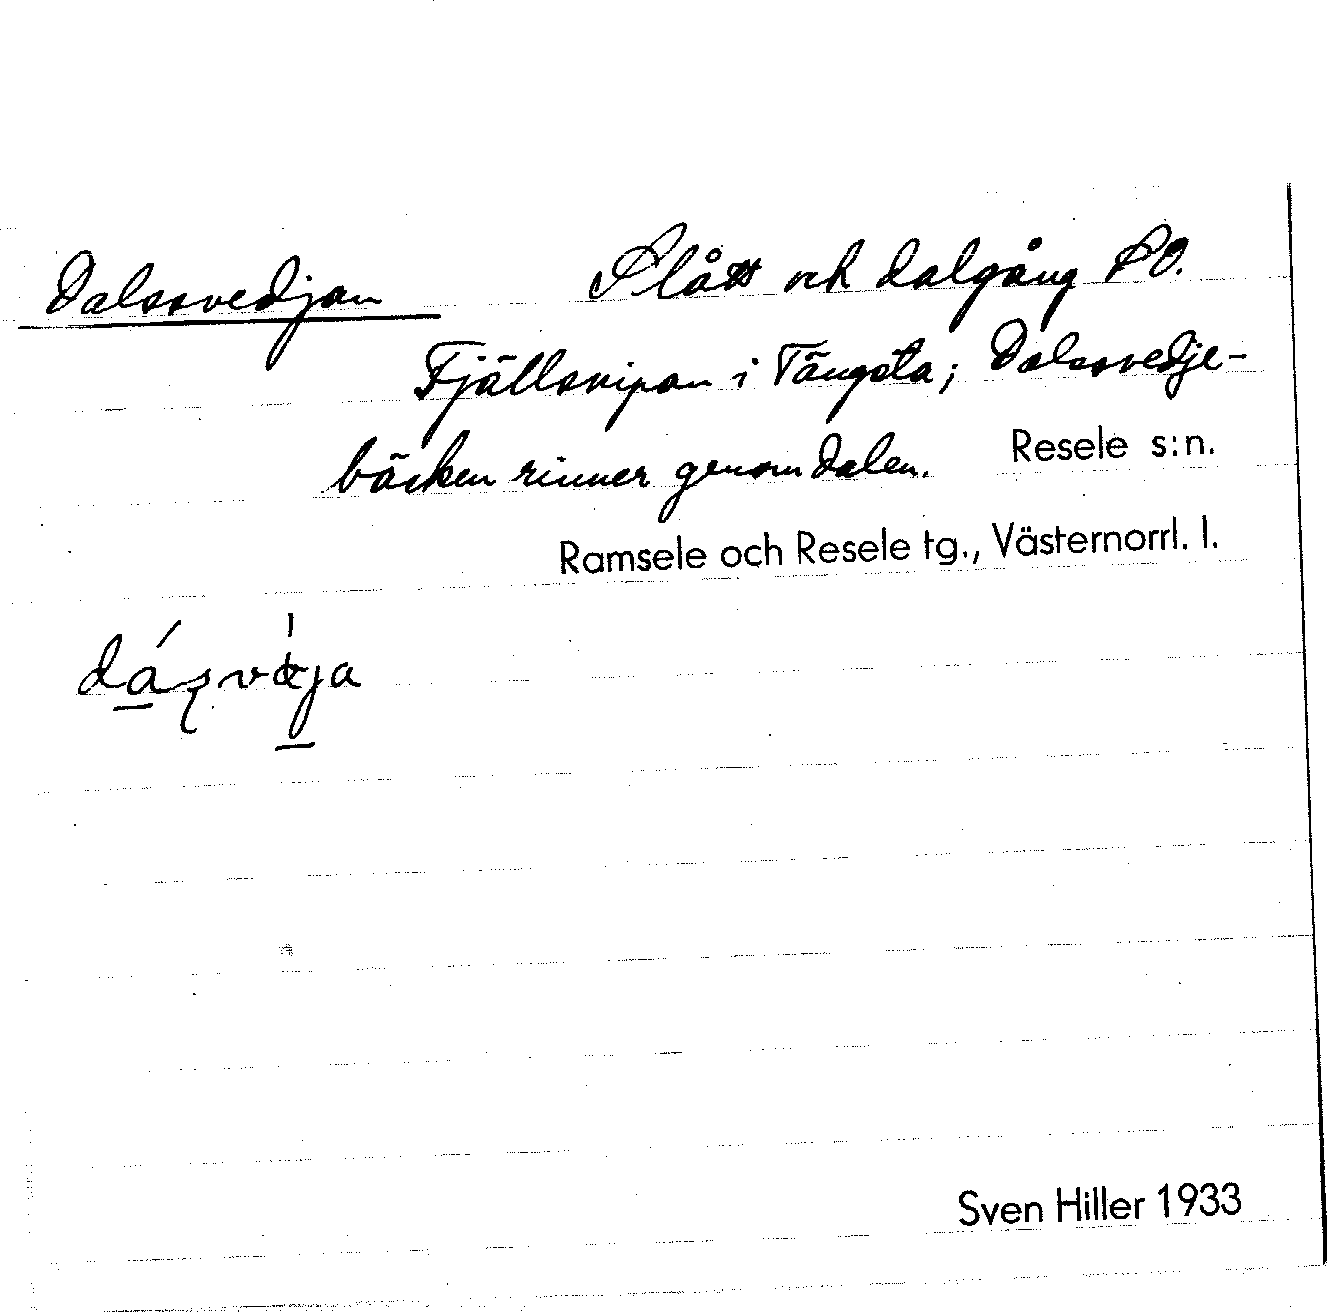 Dalssvedjan Slått och dalgång SO.
Fjällsvipan i Tängsta; Dalssvedje-
bäcken rinner genom dalen. Resele s:n.
Ramsele och Resele tg., Västernorrl. l.
Sven Hiller 1933